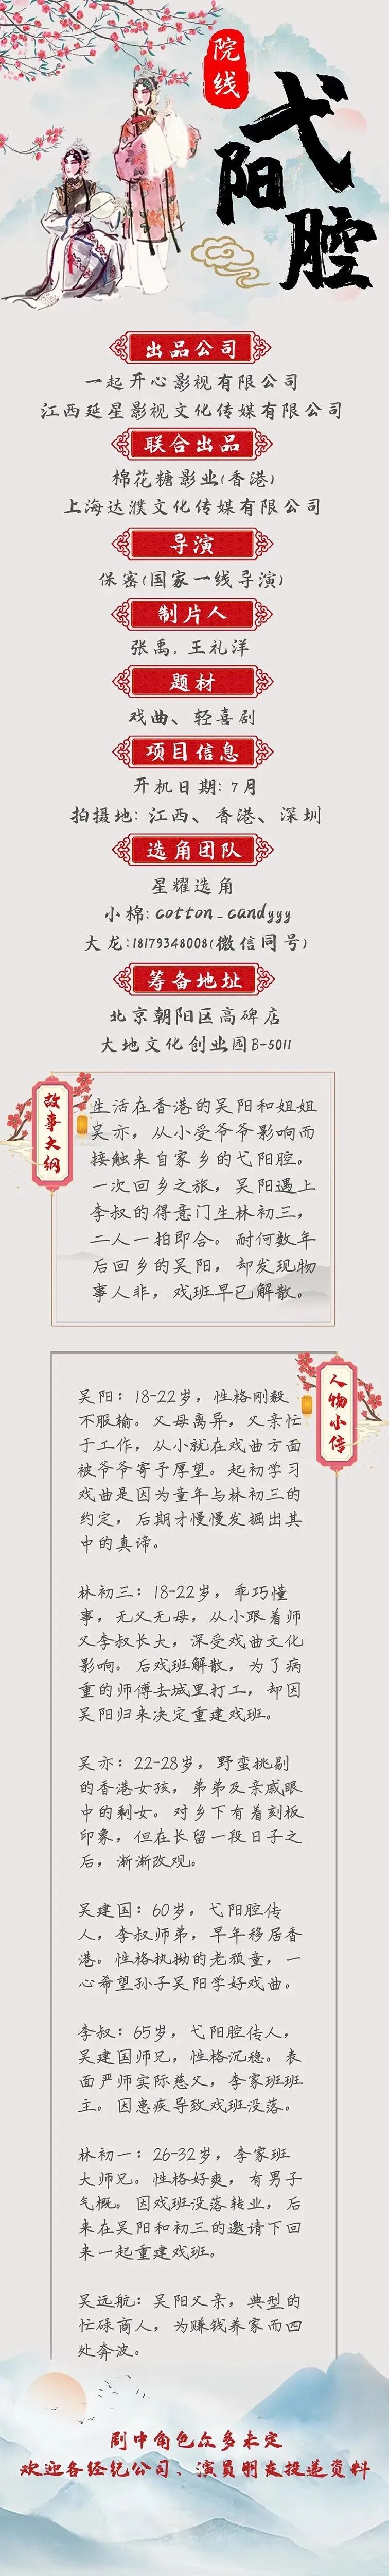 院线
弋阳腔
出品公司
一起开心影视有限公司
江西延星影视文化传媒有限公司
联合出品
棉花糖影业(香港)
上海达濮文化传媒有限公司
导演
保密(国家一线导演)
制片人
张禹, 王礼洋
题材
戏曲、轻喜剧
项目信息
开机日期: 7月
拍摄地: 江西、香港、深圳
选角团队
星耀选角
小棉: cotton_candyyy
大龙:18179348008(微信同号)
筹备地址
北京朝阳区高碑店
大地文化创业园B-5011
故事大纲
生活在香港的吴阳和姐姐
吴亦，从小受爷爷影响而
接触来自家乡的弋阳腔。
一次回乡之旅，吴阳遇上
李叔的得意门生林初三，
二人一拍即合。耐何数年
后回乡的吴阳，却发现物
事人非，戏班早已解散。
人物小传
吴阳：18-22岁，性格刚毅
不服输。父母离异，父亲忙
于工作，从小就在戏曲方面
被爷爷寄予厚望。起初学习
戏曲是因为童年与林初三的
约定，后期才慢慢发掘出其
中的真谛。
林初三：18-22岁，乖巧懂
事，无父无母，从小跟着师
父李叔长大，深受戏曲文化
影响。后戏班解散，为了病
重的师傅去城里打工，却因
吴阳归来决定重建戏班。
吴亦：22-28岁，野蛮挑剔
的香港女孩，弟弟及亲戚眼
中的剩女。对乡下有着刻板
印象，但在长留一段日子之
后，渐渐改观。
吴建国：60岁，弋阳腔传
人，李叔师弟，早年移居香
港。性格执拗的老顽童，一
心希望孙子吴阳学好戏曲。
李叔：65岁，弋阳腔传人，
吴建国师兄，性格沉稳。表
面严师实际慈父，李家班班
主。因患疾导致戏班没落。
林初一：26-32岁，李家班
大师兄。性格好爽，有男子
气概。因戏班没落转业，后
来在吴阳和初三的邀请下回
来一起重建戏班。
吴远航：吴阳父亲，典型的
忙碌商人，为赚钱养家而四
处奔波。
剧中角色众多未定
欢迎各经纪公司、演员朋友投递资料